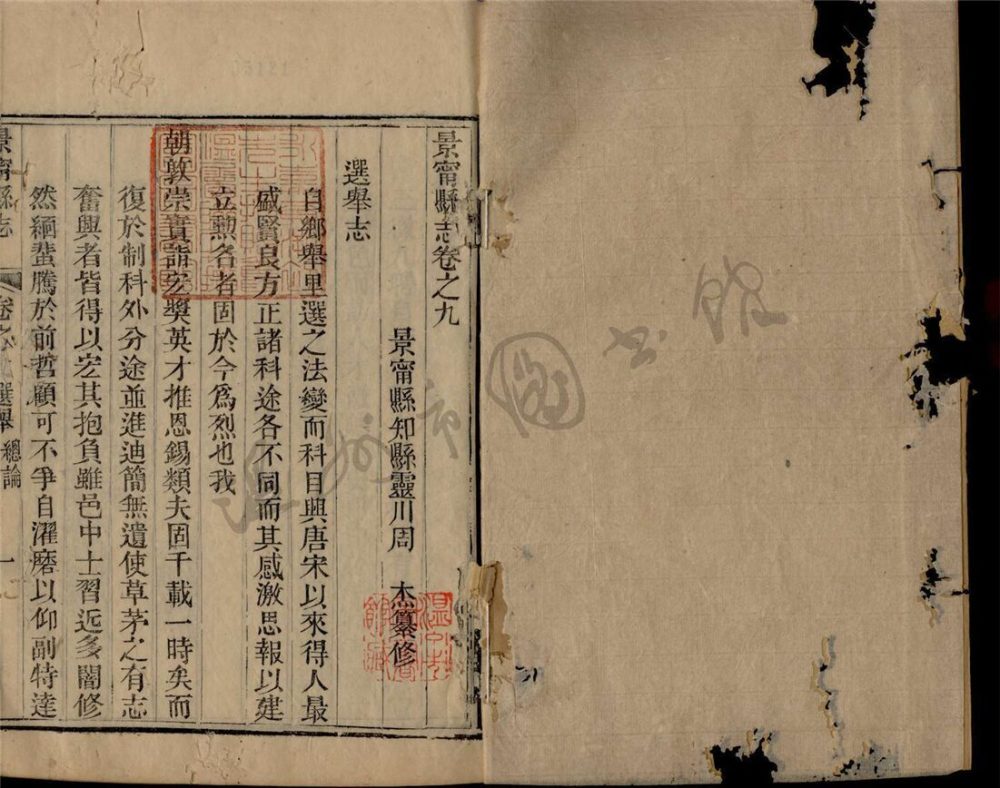 景甯縣志卷之九
景甯縣知縣靈川周杰纂修
選舉志
自鄉舉里選之法變而科目興唐宋以來得人最
盛賢良方正諸科途各不同而其感激思報以建
立勲名者固於今爲烈也我
朝敦崇實詣宏奬英才推恩錫類夫固千載一時矣而
復於制科外分途並進迪簡無遺使草茅之有志
奮興者皆得以宏其抱負雖邑中士習近多闇修
然緬蜚騰於前哲顧可不爭自濯磨以仰副特達
景甯縣志 卷之 選舉 總論 一
溫州市圖書館